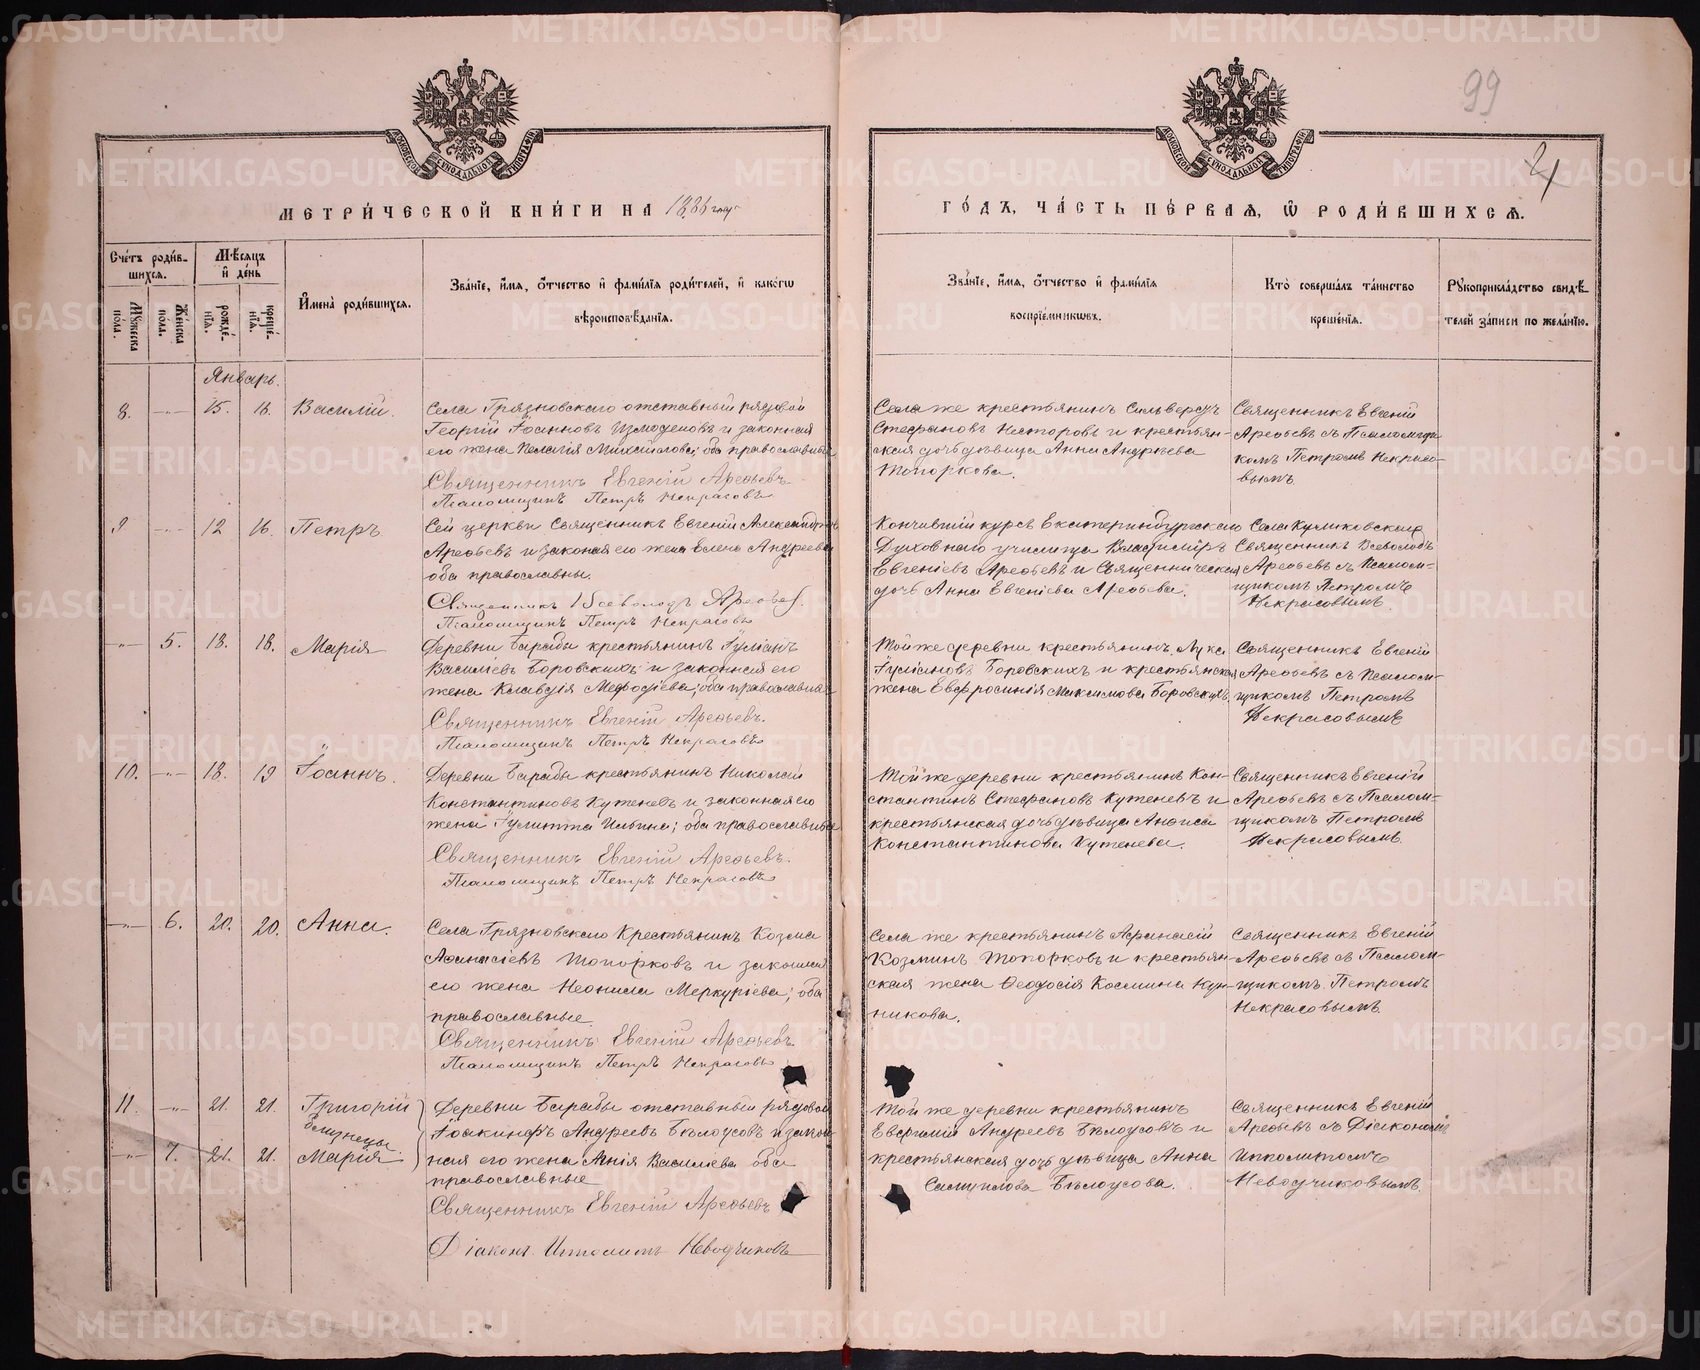 99
21
МЕТРИ́ЧЕСКОЙ КНИ́ГИ НА 1886 году
ГО́ДЪ, ЧА́СТЬ ПЕ́РВАЯ, Ѡ РОДИ́ВШИХСЯ.
Сче́тъ роди́в-
шихся.
Мѣ́сяцъ
и҆ де́нь
Мꙋ́жеска по́ла.
Же́нска по́ла.
рожде́-
нїя.
креще́-
нїя.
И҆мена̀ роди́вшихся.
Зва́нїе, и҆́мя, о҆́тчество и҆ фами́лїя роди́телей, и҆ како́гѡ
вѣроисповѣ́данїя.
Зва́нїе, и҆́мя, о҆́тчество и҆ фами́лїя
воспрїе́мникѡвъ.
Кто̀ соверша́лъ та́инство
креще́нїя.
Рꙋкоприкла́дство свидѣ́-
телей за́писи по жела́нїю.
Январь.
8. —"— 15. 18. Василій.
Села Грязновскаго отставный рядовой
Георгій Іоанновъ Измоденовъ и законная
его жена Пелагія Михайлова; оба православные
Священникъ Евгеній Арефьевъ
Псаломщикъ Петръ Некрасовъ
Села же крестьянинъ Сильверстъ
Стефановъ Несторовъ и крестьян-
ская дочь дѣвица Анна Андреева
Топоркова.
Священникъ Евгеній
Арефьевъ съ Псаломщи-
комъ Петромъ Некрасо-
вымъ
9 —"— 12 16. Петръ
Сей церкви Священникъ Евгеній Александровъ
Арефьевъ и законая его жена Елена Андреева
оба православны.
Священникъ Всеволодъ Арефьев.
Псаломщикъ Петръ Некрасовъ
Кончившій курсъ Екатеринбургскаго
Духовнаго училища Владиміръ
Евгеніевъ Арефьевъ и Священническая
дочь Анна Евгеніева Арефьева.
Села Куликовскаго
Священникъ Всеволодъ
Арефьевъ съ Псалом-
щикомъ Петромъ
Некрасовымъ.
—"— 5. 18. 18. Марія
Деревни Барабы крестьянинъ Іуліанъ
Василіевъ Боровскихъ и законная его
жена Клавдія Мефодіева; оба православные
Священникъ Евгеній Арефьевъ.
Псаломщикъ Петръ Некрасовъ
Той же деревни крестьянинъ Лука
Іуліановъ Боровскихъ и крестьянская
жена Евфросинія Максимова Боровскихъ.
Священникъ Евгеній
Арефьевъ съ Псалом-
щикомъ Петромъ
Некрасовымъ
10. —"— 18. 19 Іоаннъ.
Деревни Барабы крестьянинъ Николай
Константиновъ Кутеневъ и законная его
жена Іулитта Ильина; оба православные
Священникъ Евгеній Арефьевъ.
Псаломщикъ Петръ Некрасовъ
Той же деревни крестьянинъ Кон-
стантинъ Стефановъ Кутеневъ и
крестьянская дочь дѣвица Анфиса
Константинова Кутенева.
Священникъ Евгеній
Арефьевъ съ Псалом-
щикомъ Петромъ
Некрасовымъ.
—"— 6. 20. 20. Анна.
Села Грязновскаго Крестьянинъ Козма
Афанасіевъ Топорковъ и законная
его жена Неонила Меркуріева; оба
православные
Священникъ Евгеній Арефьевъ.
Псаломщикъ Петръ Некрасовъ
Села же крестьянинъ Афанасій
Козминъ Топорковъ и крестьян-
ская жена Феодосія Космина Кун-
никова.
Священникъ Евгеній
Арефьевъ съ Псалом-
щикомъ Петромъ
Некрасовымъ.
11. —"— 21. 21. Григорій
близнецы
—"— 7. 21. 21. Марія
Деревни Барабы отставный рядовой
Іоакинфъ Андреевъ Бѣлоусовъ и закон-
ная его жена Анія Василіева оба
православные
Священникъ Евгеній Арефьевъ
Діаконъ Ипполитъ Неводчиковъ
Той же деревни крестьянинъ
Евфимій Андреевъ Бѣлоусовъ и
крестьянская дочь дѣвица Анна
Самуилова Бѣлоусова.
Священникъ Евгеній
Арефьевъ съ Діакономъ
Ипполитомъ
Неводчиковымъ.
METRIKI.GASO-URAL.RU